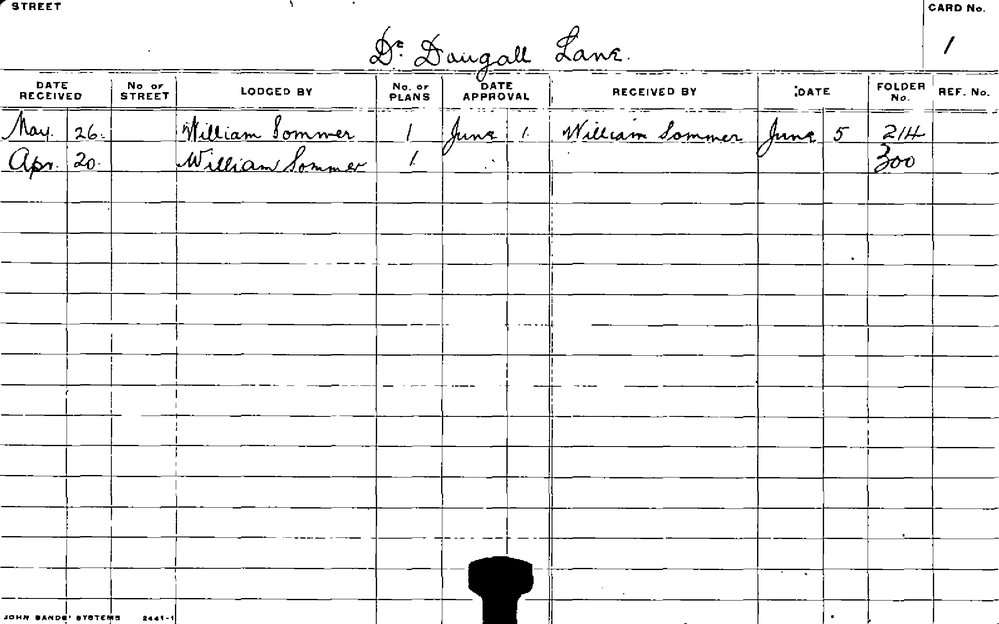 STREET
CARD No.
Dc Dougall Lane.
1
DATE RECEIVED No OF STREET LODGED BY No. OF PLANS DATE APPROVAL RECEIVED BY DATE FOLDER No. REF. No.
May. 26. William Sommer 1 June 1. William Sommer June 5 214
Apr. 20. William Sommer 1 300
JOHN SANDS' SYSTEMS 2441-1